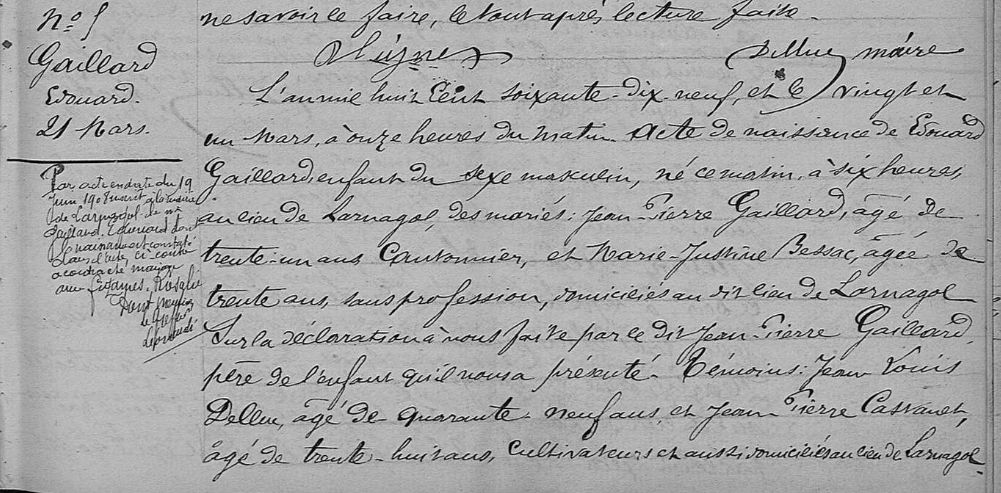 ne savoir le faire, le tout après lecture faite.
Delluc maire
N° 5
Gaillard
Edouard.
21 Mars.
L'an mil huit Cent soixante-dix-neuf, et le vingt et
un Mars, à onze heures du matin. Acte de naissance de Edouard
Gaillard, enfant du sexe masculin, né ce matin, à six heures,
au lieu de Larnagol, des mariés: Jean-Pierre Gaillard, âgé de
trente-un ans Cantonnier, et Marie-Justine Bessac, âgée de
trente ans, sans profession, domiciliés au dit lieu de Larnagol
Sur la déclaration à nous faite par le dit Jean-Pierre Gaillard,
père de l'enfant qu'il nous a présenté. Témoins: Jean Louis
Delluc, âgé de quarante-neuf ans, et Jean-Pierre Castanet,
âgé de trente-huit ans, cultivateurs et aussi domiciliés au lieu de Larnagol.
Par acte en date du 19
Juin 1905 inscrit à la mairie
de Larnagol le Nt
Gaillard, Edouard dont
la naissance est constatée
dans l'acte, ci-contre
a contracté mariage
avec Rosalie
Dont mention
Le greffier